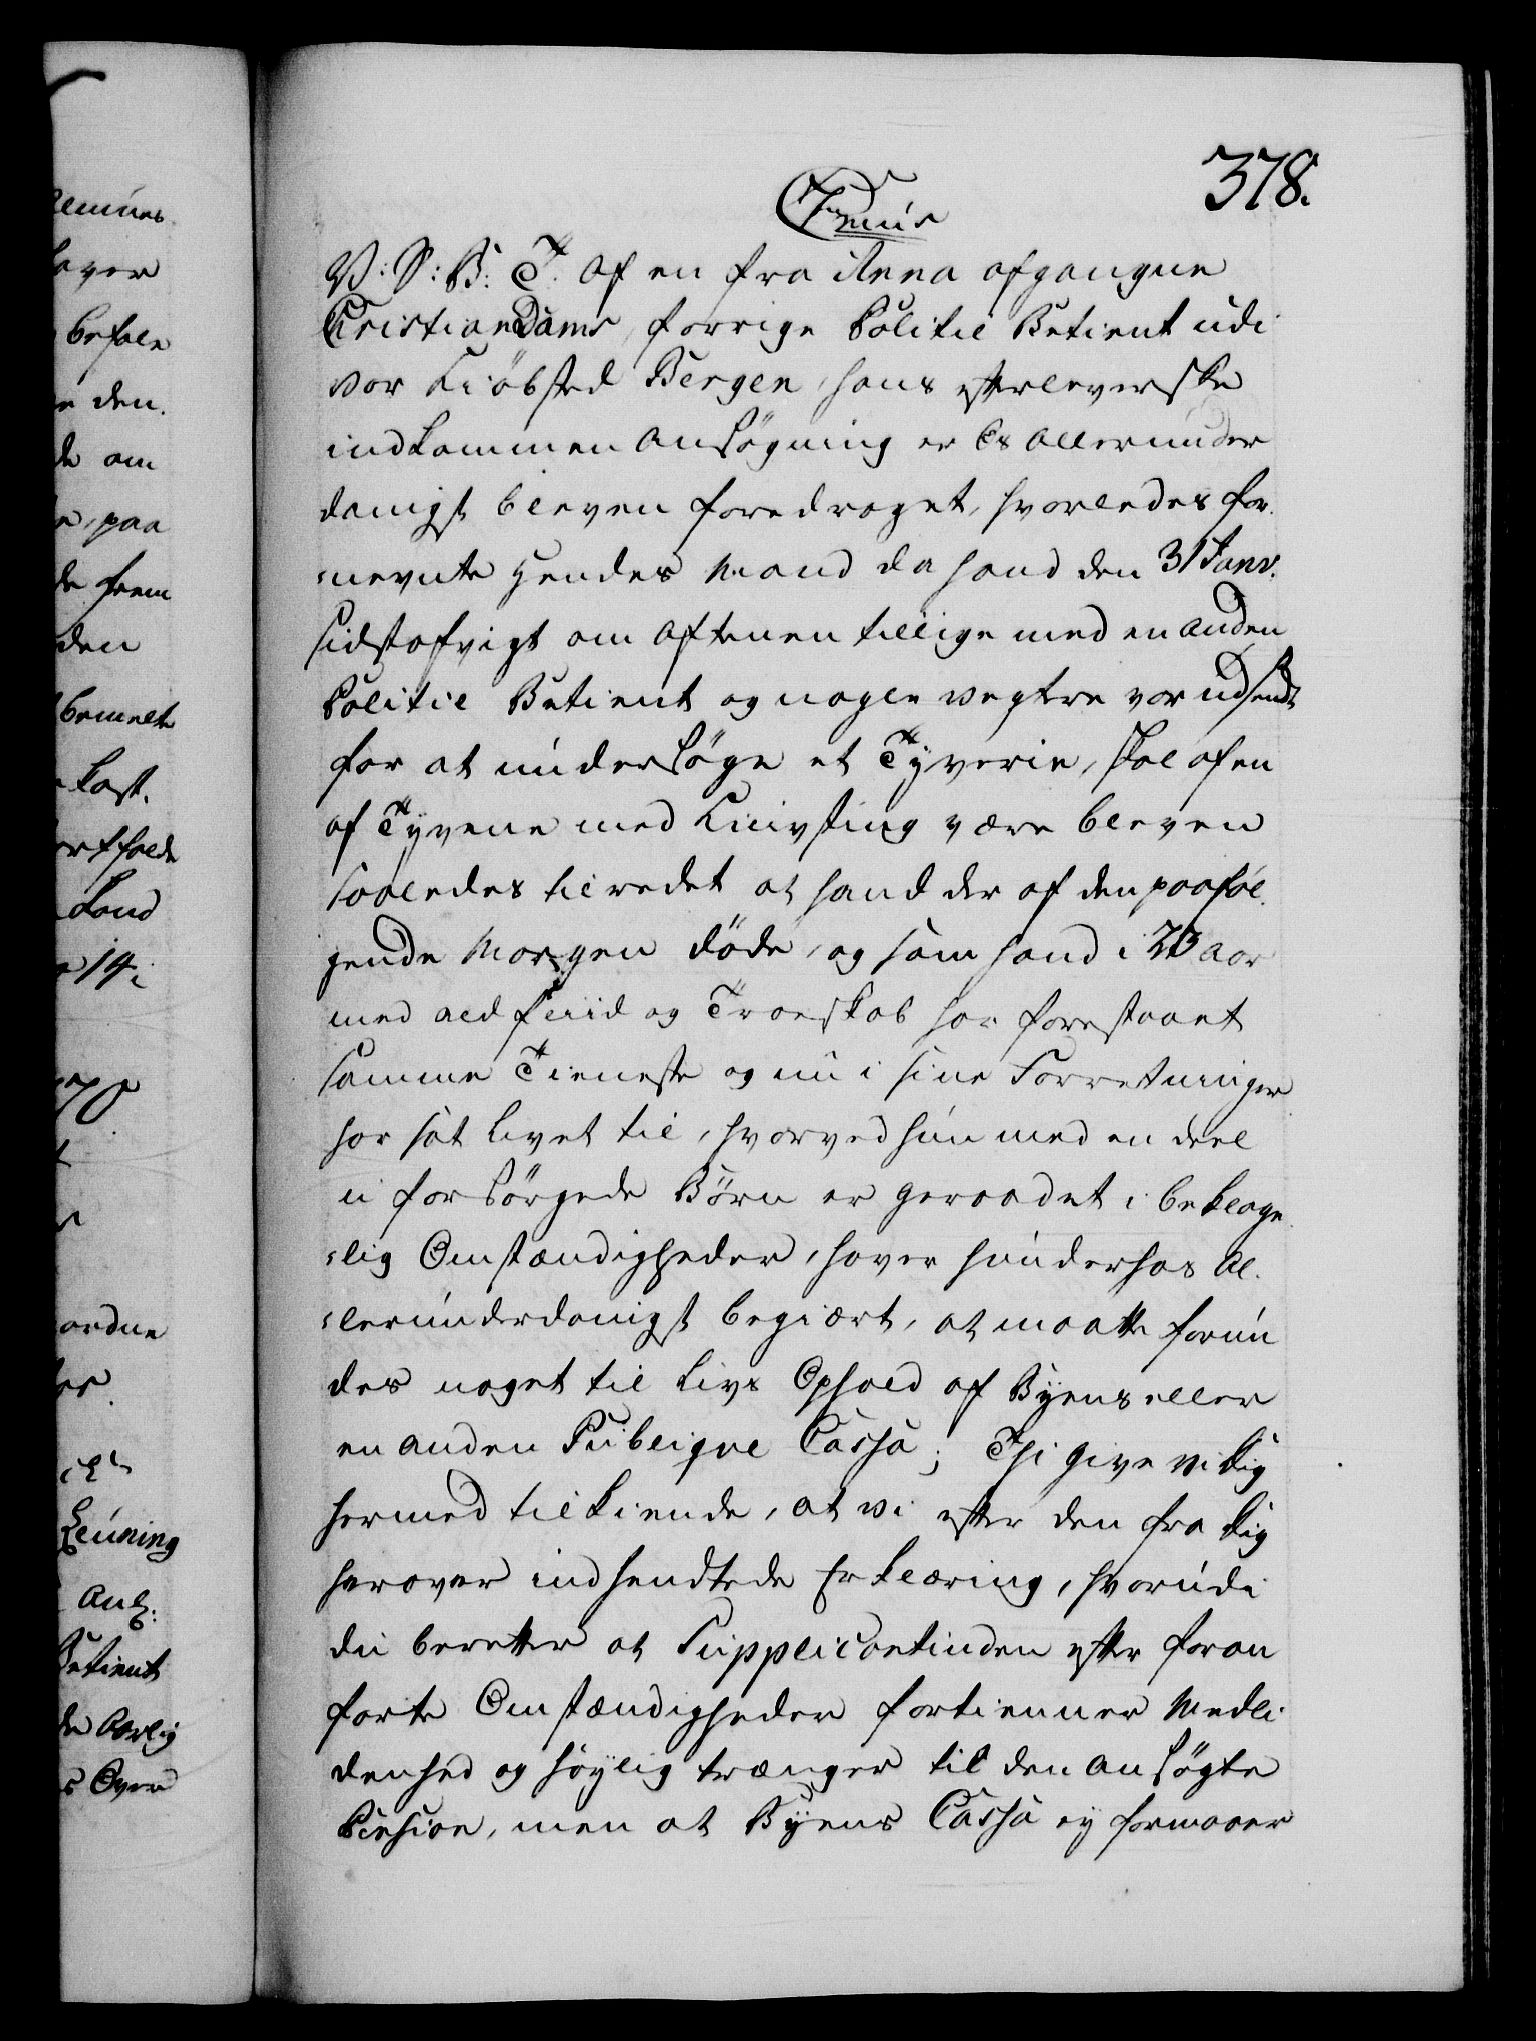 378.
V: S: B: T. Af en fra Anna afgangne
Cristian Dams, forrige Politie Betient udi
vor Kiöbsted Bergen, hans efterleverske
indkommen Ansögning er Os Allerunder
danigst bleven foredraget, hvorledes for.
nevnte hendes Mand da hand den 31 Janv.
sidstafvigt om Aftenen tillige med en anden
Politie Betient og nogle vegtere var udsendt
for at undersöge et Tyverie, skal af en
af Tyvene med Knivsting være bleven
saaledes tilredet at hand der af den paaföl.
gende Morgen döde, og som hand i 23 Aar
med all fliid og Troeskab har forestaaet
samme Tieneste og nu i sine Forretninger
har sat Livet til, hvorved hun med en deel
u forsörgede Börn er geraadet i beklage
lig Omstændigheder, haver hun derhos Al.
lerunderdanigst begiært, at maatte forun
des noget til Livs Ophold af Byens eller
en anden Publiqve Cassa; Thi give vi Dig
hermed tilkiende, at vi efter den fra Dig
herover indhendtede Erklæring, hvorudi
du beretter at Supplicantinden efter foran
förte Omstændigheder fortienner Medli
denhed og höylig trænger til den ansögte
Pension, men at Byens Cassa ey formaaer
befale
den.
om
paa
frem
den
bemelte
Kast.
Land
14.
ordne
Betient
Aarlig
Over